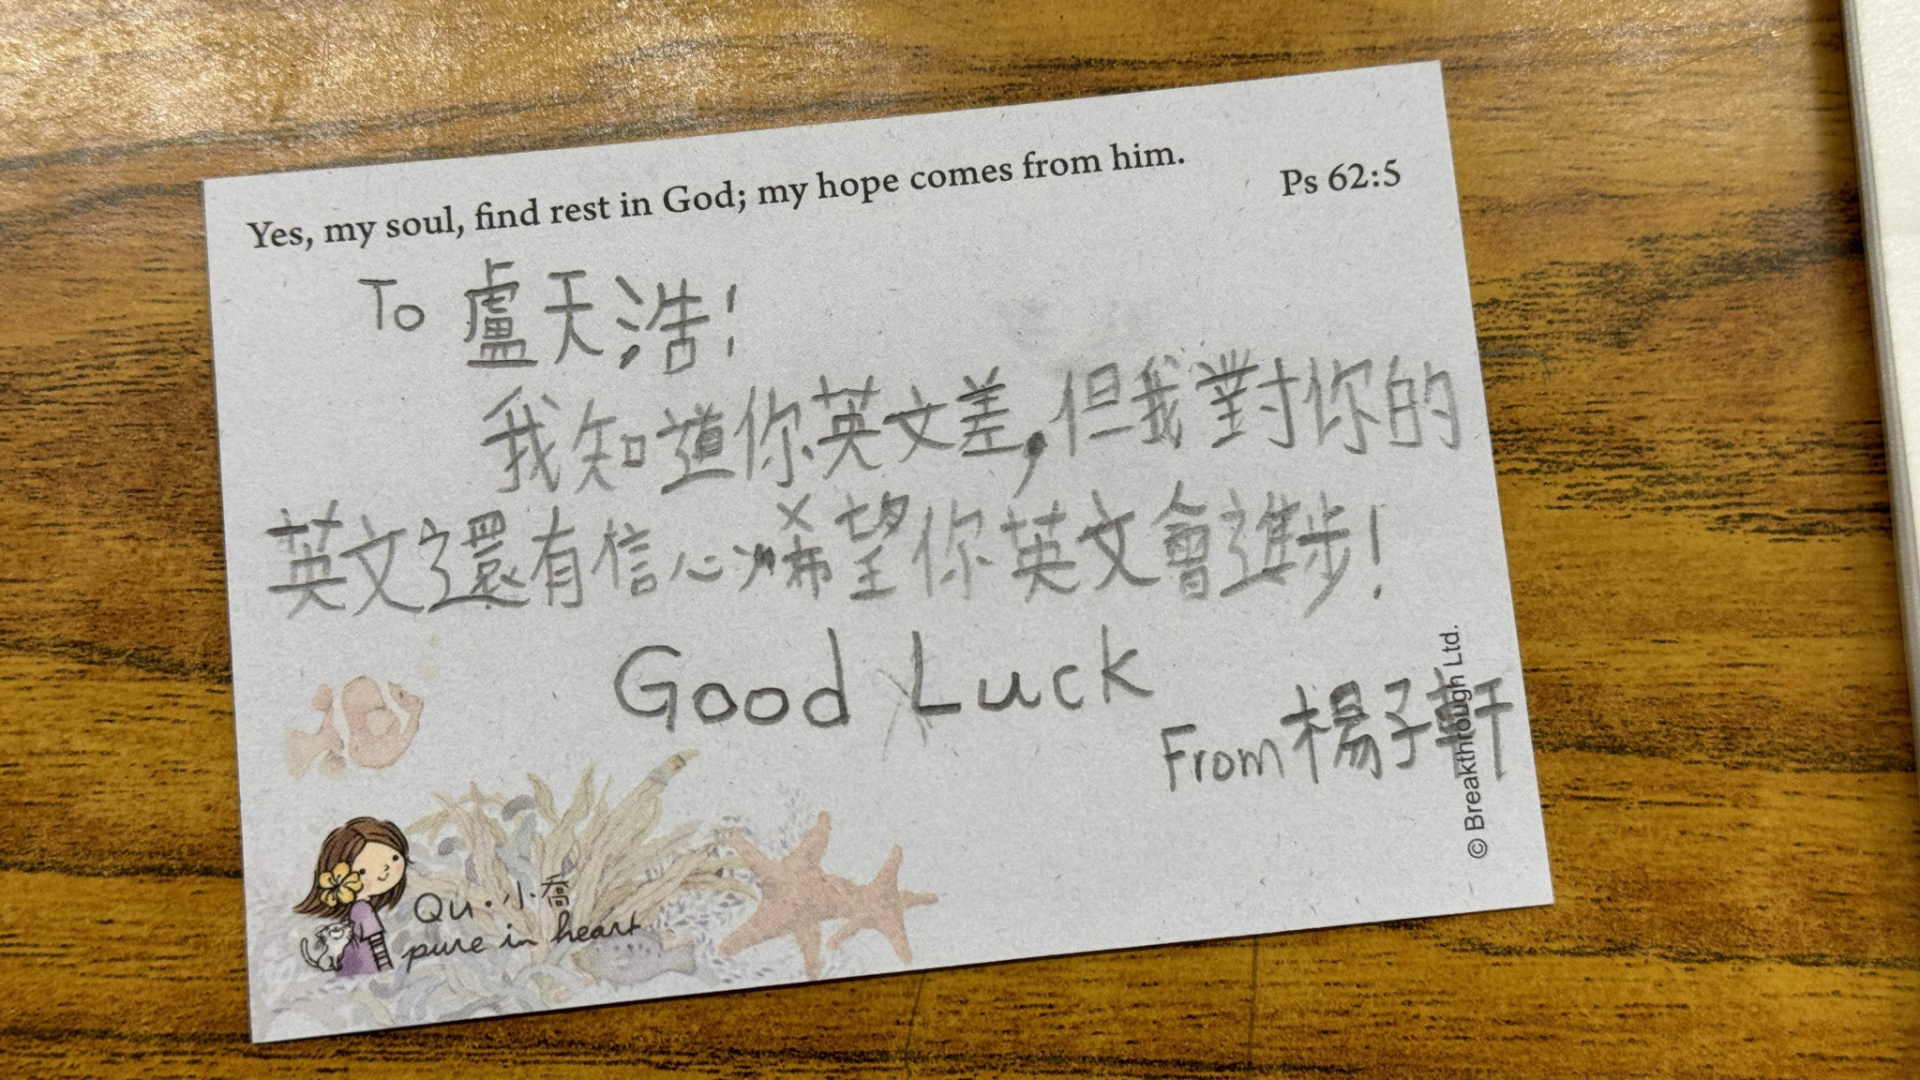 Yes, my soul, find rest in God; my hope comes from him.
Ps 62:5
To 盧天浩!
我知道你英文差,但我對你的
英文還有信心希望你英文會進步!
Good Luck
From 楊子軒
© Breakthrough Ltd.
Qu·小喬
pure in heart